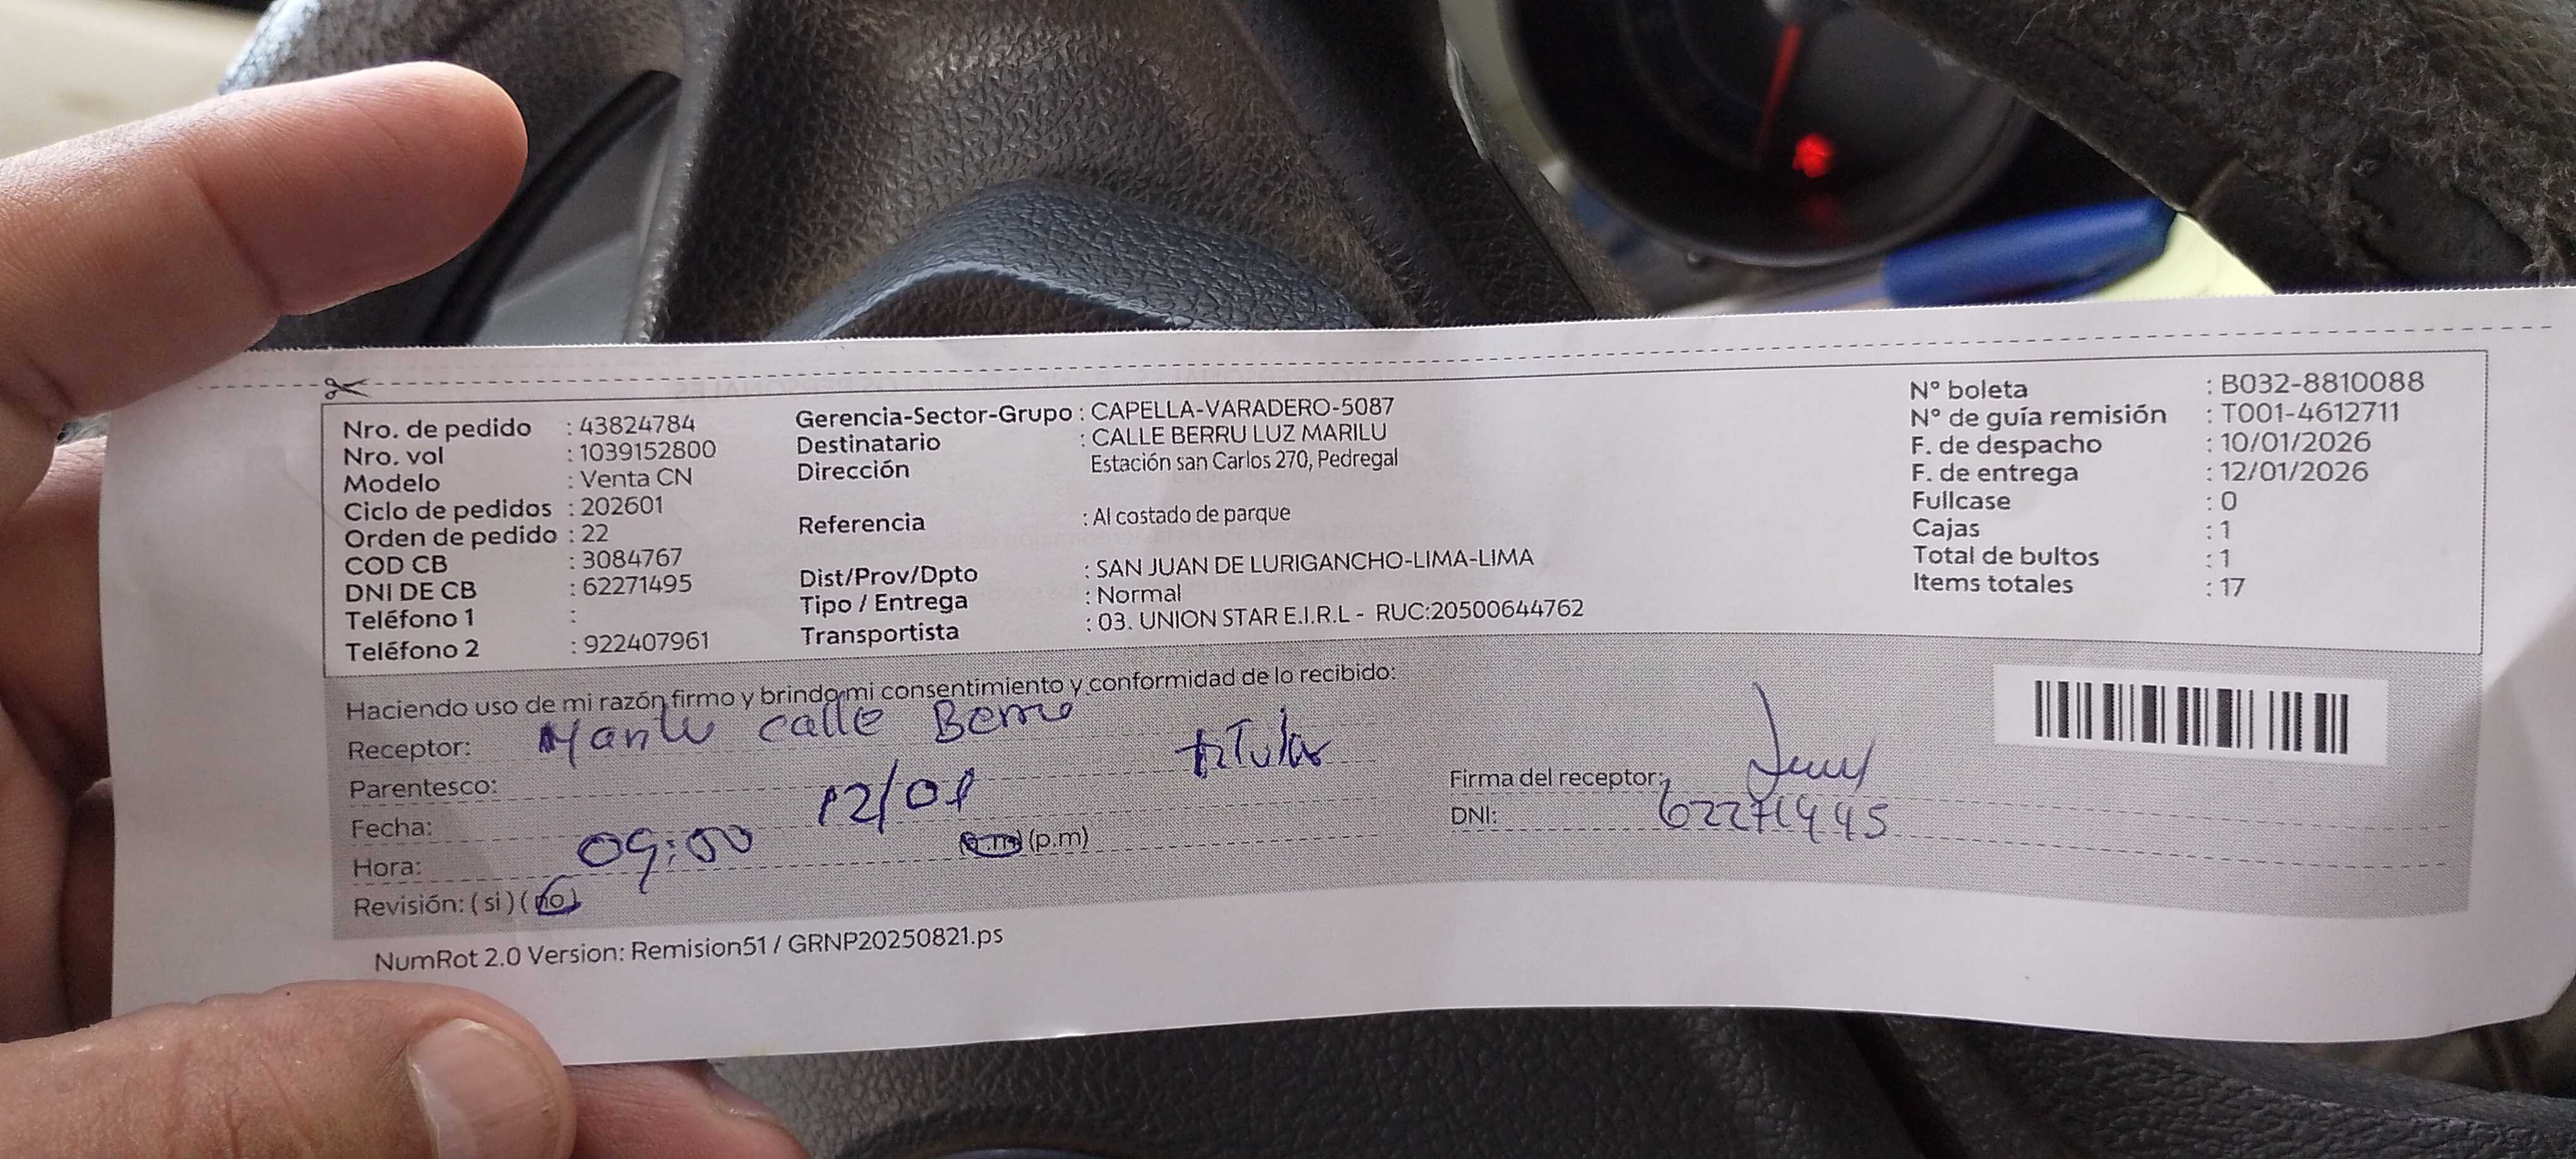 Nro. de pedido : 43824784
Nro. vol : 1039152800
Modelo : Venta CN
Ciclo de pedidos : 202601
Orden de pedido : 22
COD CB : 3084767
DNI DE CB : 62271495
Teléfono 1 :
Teléfono 2 : 922407961
Gerencia-Sector-Grupo : CAPELLA-VARADERO-5087
Destinatario : CALLE BERRU LUZ MARILU
Dirección Estación san Carlos 270, Pedregal
Referencia : Al costado de parque
Dist/Prov/Dpto : SAN JUAN DE LURIGANCHO-LIMA-LIMA
Tipo / Entrega : Normal
Transportista : 03. UNION STAR E.I.R.L - RUC:20500644762
N° boleta : B032-8810088
N° de guía remisión : T001-4612711
F. de despacho : 10/01/2026
F. de entrega : 12/01/2026
Fullcase : 0
Cajas : 1
Total de bultos : 1
Items totales : 17
Haciendo uso de mi razón firmo y brindo mi consentimiento y conformidad de lo recibido:
Receptor: Marilu calle Berru
Parentesco: titular
Fecha: 12/01
Hora: 09:00 (a.m) (p.m)
Revisión: ( si ) ( no )
Firma del receptor:
DNI: 62271495
NumRot 2.0 Version: Remision51 / GRNP20250821.ps